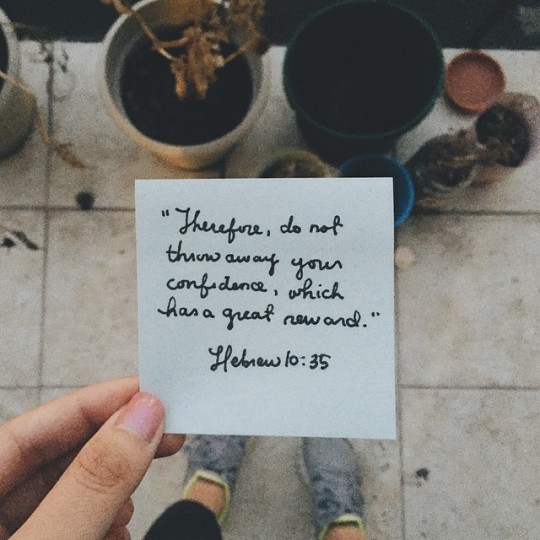 "Therefore, do not
throw away your
confidence, which
has a great reward."
Hebrew 10:35